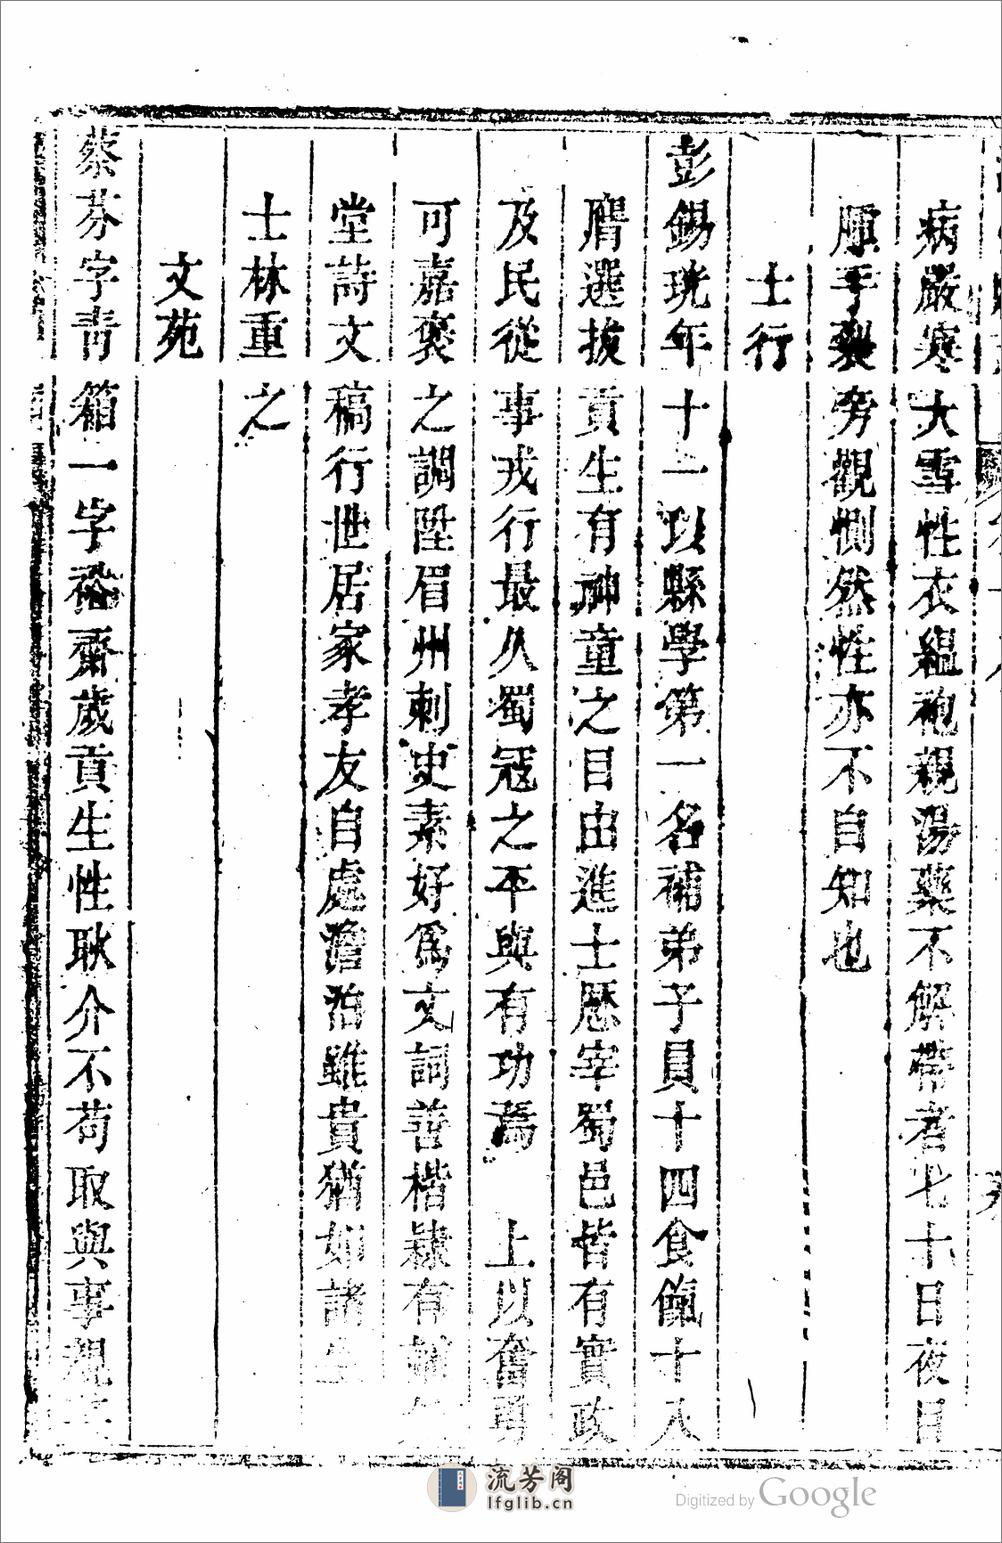 病嚴寒大雪性衣縕袍親湯藥不解帶者七十日夜目
腫手裂旁觀惻然性亦不自知也
士行
彭錫珖年十一以縣學第一名補弟子員十四食餼十八
膺選拔貢生有神童之目由進士歷宰蜀邑皆有實政
及民從事戎行最久蜀寇之平與有功焉 上以奮勇
可嘉褒之調陞眉州刺史素好爲文詞善楷隸有
堂詩文稿行世居家孝友自處澹泊雖貴猶如諸生
士林重之
文苑
蔡芬字靑箱一字裕齋歲貢生性耿介不苟取與事親
流芳阁
lfglib.cn
Digitized by Google